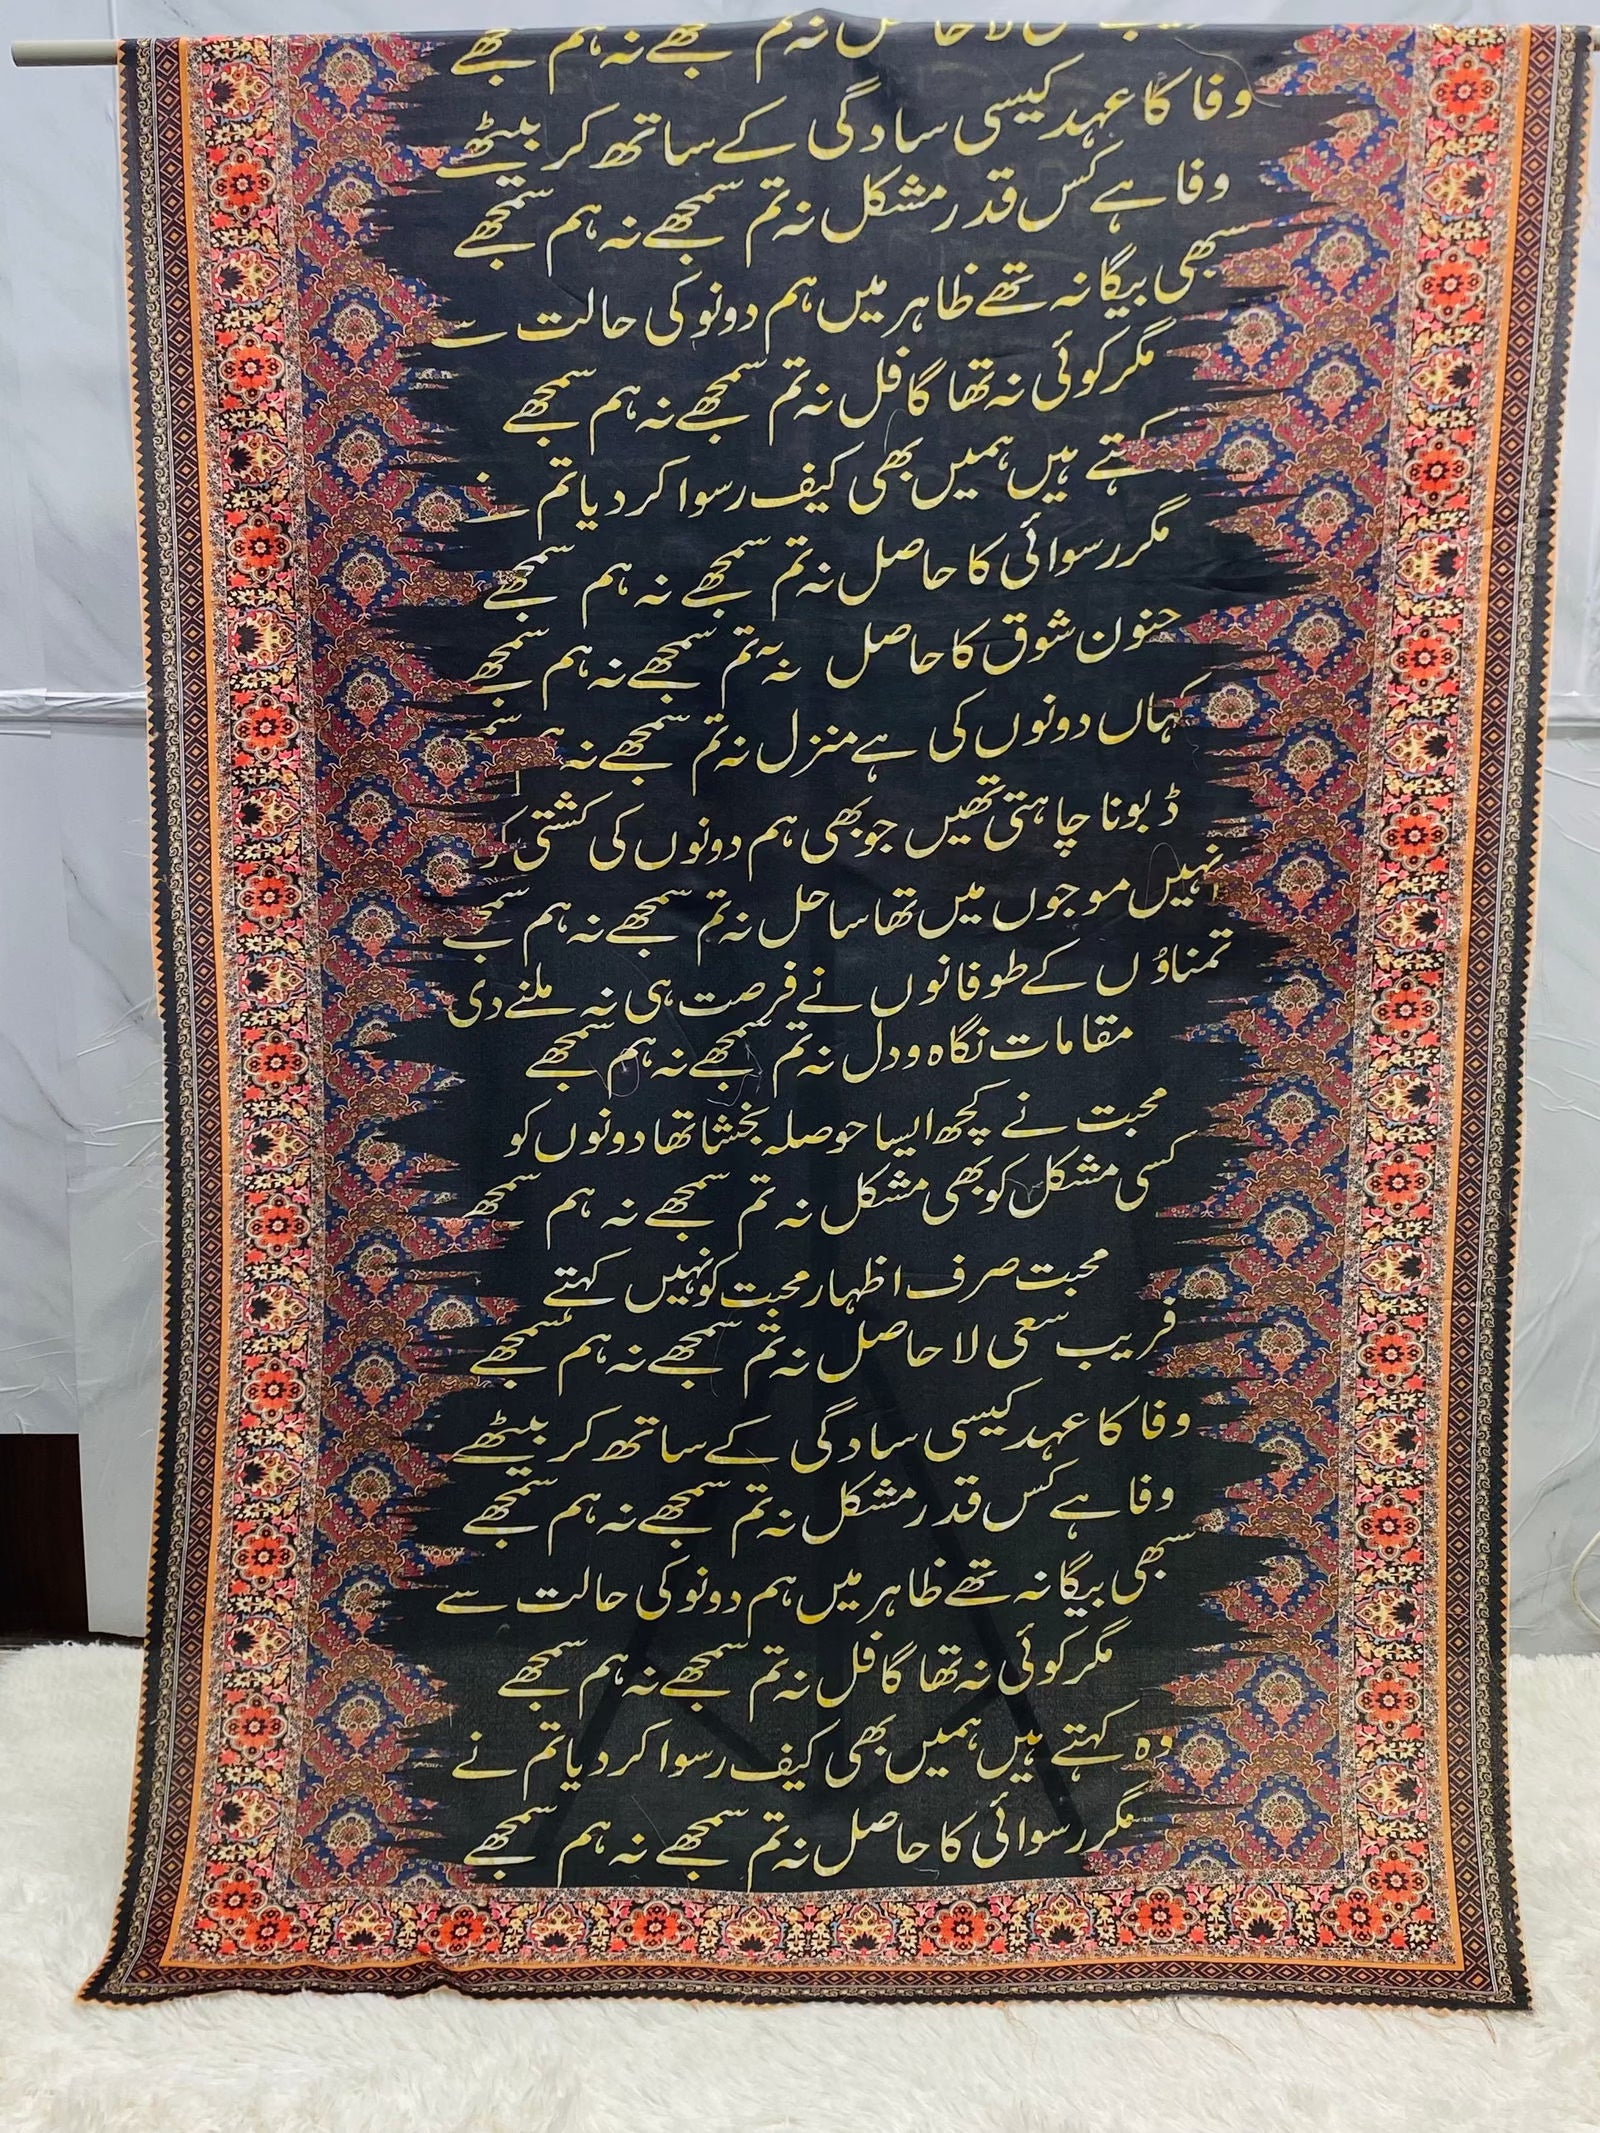 فریب سعی لا حاصل نہ تم سمجھے نہ ہم سمجھے
وفا کا عہد کیسی سادگی کے ساتھ کر بیٹھے
وفا ہے کس قدر مشکل نہ تم سمجھے نہ ہم سمجھے
سبھی بیگانہ تھے ظاہر میں ہم دونو کی حالت سے
مگر کوئی نہ تھا گافل نہ تم سمجھے نہ ہم سمجھے
کہتے ہیں ہمیں بھی کیف رسوا کر دیا تم نے
مگر رسوائی کا حاصل نہ تم سمجھے نہ ہم سمجھے
جنون شوق کا حاصل نہ تم سمجھے نہ ہم سمجھے
کہاں دونوں کی ہے منزل نہ تم سمجھے نہ
ڈبونا چاہتی تھیں جو بھی ہم دونوں کی کشتی
نہیں موجوں میں تھا ساحل نہ تم سمجھے نہ ہم
تمناؤں کے طوفانوں نے فرصت ہی نہ ملنے دی
مقامات نگاہ و دل نہ تم سمجھے نہ ہم سمجھے
محبت نے کچھ ایسا حوصلہ بخشا تھا دونوں کو
کسی مشکل کو بھی مشکل نہ تم سمجھے نہ ہم سمجھے
محبت صرف اظہار محبت کو نہیں کہتے
فریب سعی لا حاصل نہ تم سمجھے نہ ہم سمجھے
وفا کا عہد کیسی سادگی کے ساتھ کر بیٹھے
وفا ہے کس قدر مشکل نہ تم سمجھے نہ ہم سمجھے
سبھی بیگانہ تھے ظاہر میں ہم دونو کی حالت سے
مگر کوئی نہ تھا گافل نہ تم سمجھے نہ ہم سمجھے
وہ کہتے ہیں ہمیں بھی کیف رسوا کر دیا تم نے
مگر رسوائی کا حاصل نہ تم سمجھے نہ ہم سمجھے